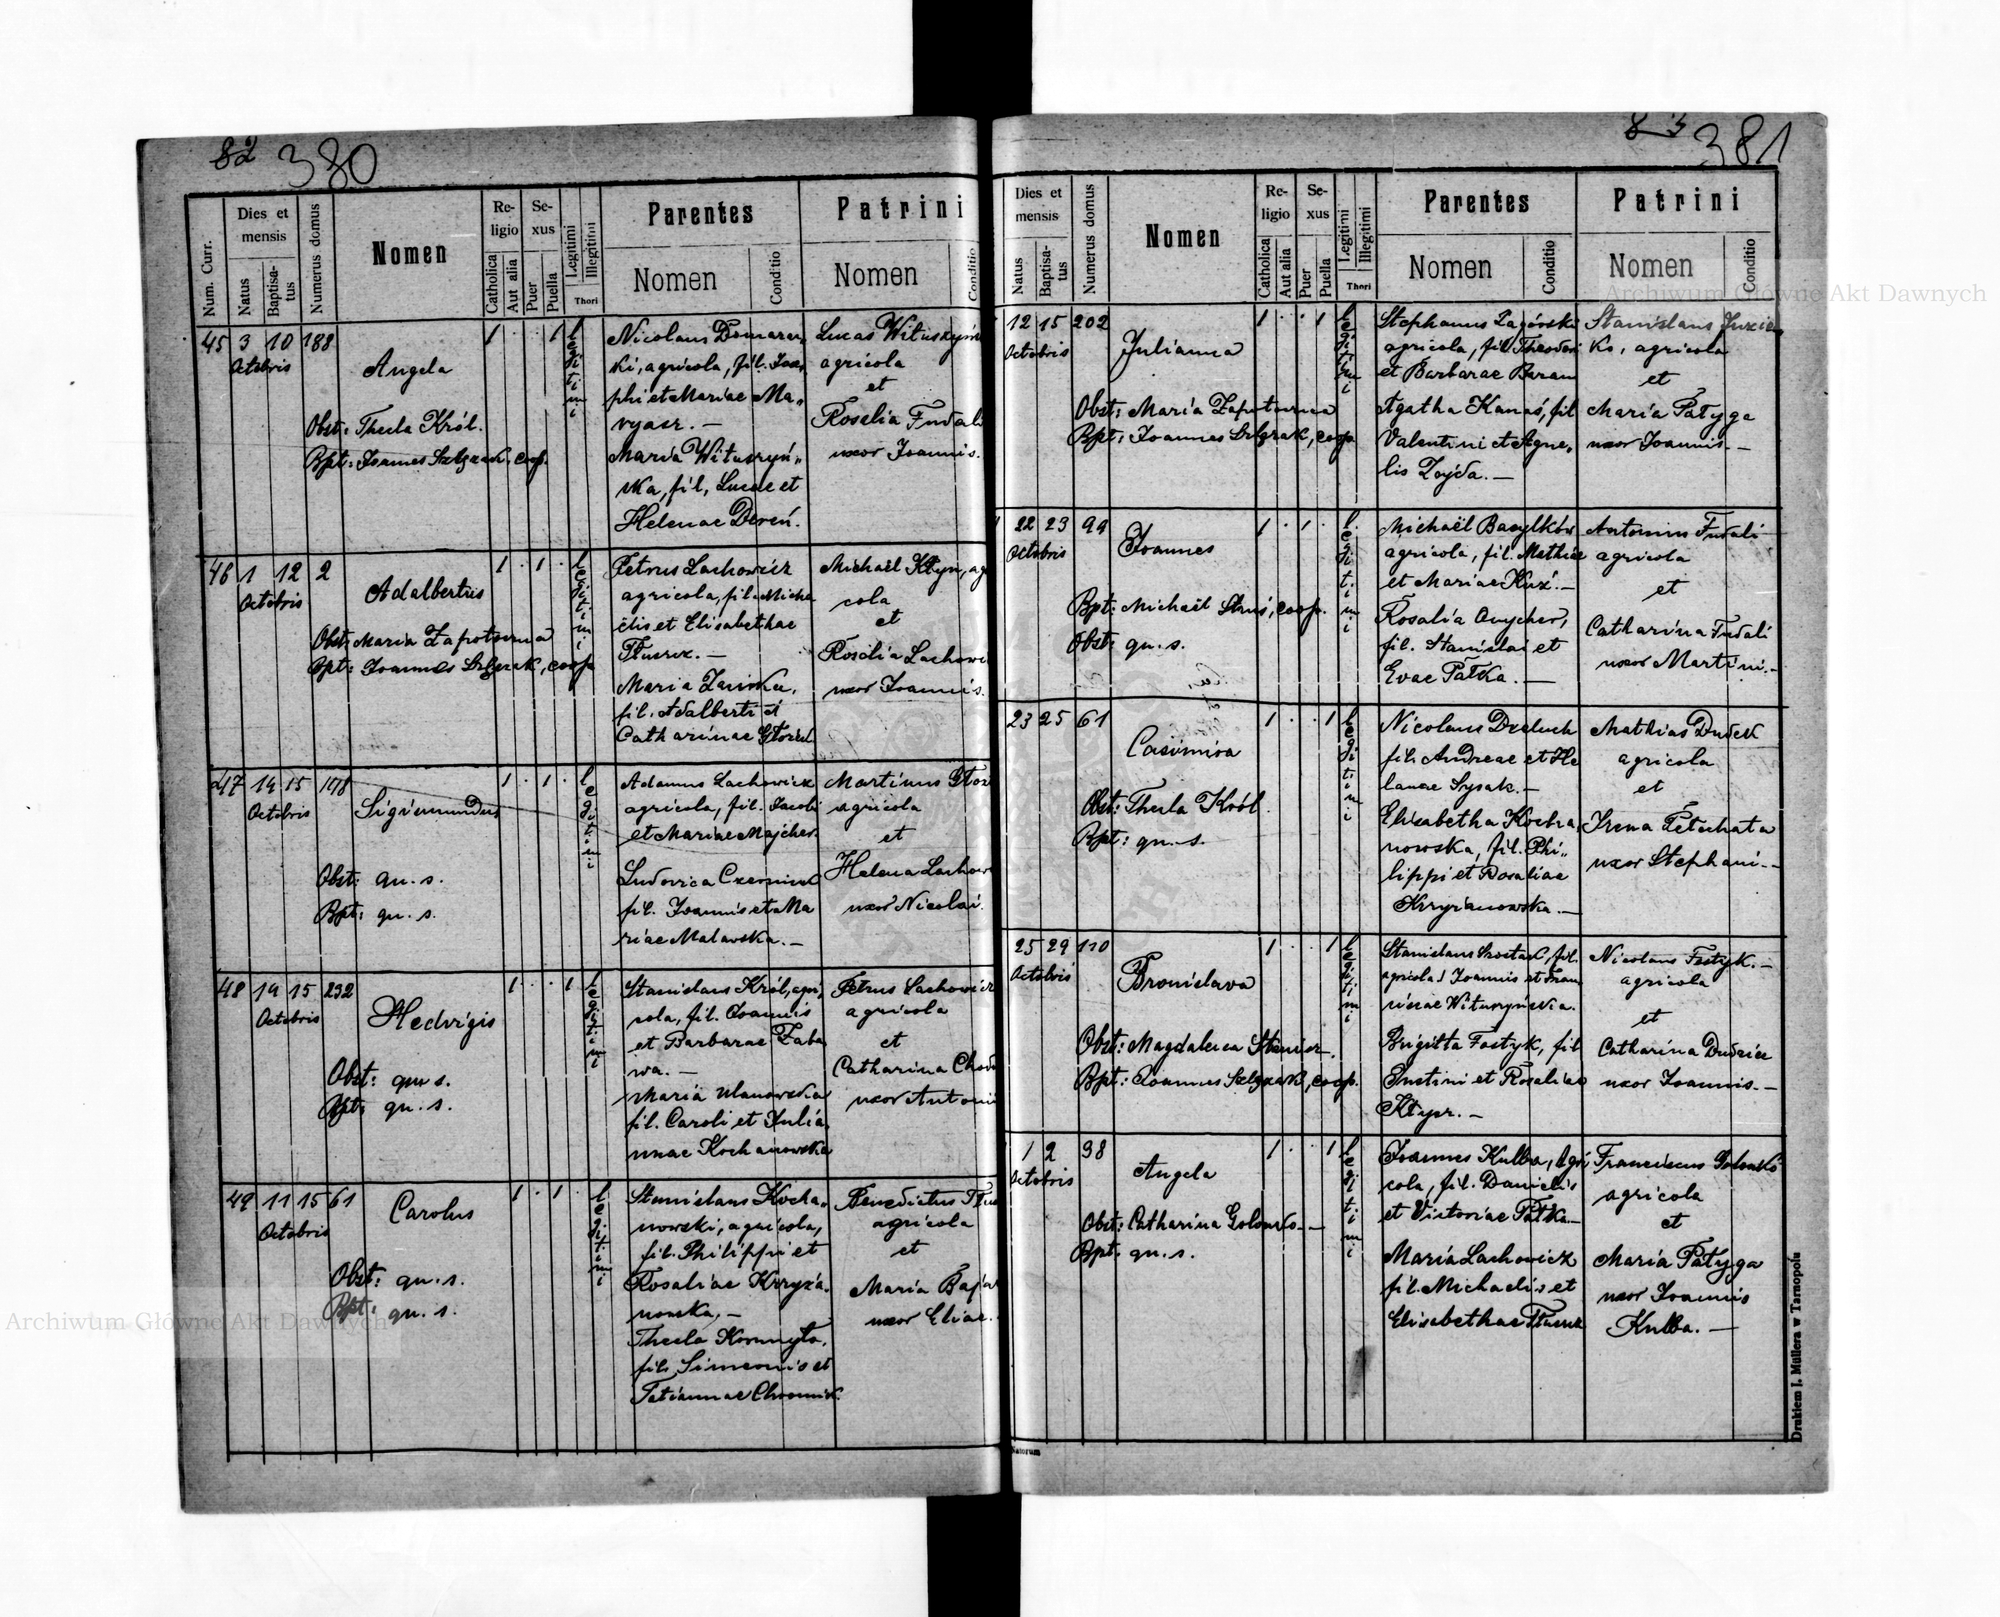 82 380
Num. Curr.
Dies et mensis
Natus
Baptisatus
Numerus domus
Nomen
Religio
Catholica
Aut alia
Sexus
Puer
Puella
Legitimi
Illegitimi
Thori
Parentes
Nomen
Conditio
Patrini
Nomen
Conditio
45 3 10 188 1 . . 1 legitimi
Octobris
Angela
Obst: Thecla Król.
Bpt: Joannes Szlęzak, coop.
ki, agricola, fil. Jose„
phi et Mariae Ma„
Maria Wituszyń„
ska, fil. Lucae et
Helenae Dereń.
Lucas Wituszyńs
agricola
et
Rosalia Fudali
uxor Joannis.
46 1 12 2 1 . 1 . legitimi
Octobris
Adalbertus
Obst: Maria Zapotoczna
Bpt: Joannes Szlęzak, coop
Petrus Lachowicz
agricola, fil. Micha
ëlis et Elisabethae
Tłuszcz. —
Maria
fil. Adalberti et
Catharinae
Michaël Kłyn, ag
cola
et
Rosalia Lachowi
uxor Joannis.
47 14 15 178 1 . 1 . legitimi
Octobris
Sigismundus
Obst: qu. s.
Bpt: qu. s.
Adamus Lachowicz
agricola, fil. Jacobi
et Mariae Majcher.
Ludovica
fil. Joannis et Ma
riae Malawska. —
Martinus
agricola
et
Helena Lachow
uxor Nicolai.
48 14 15 232 1 . . 1 legitimi
Octobris
Hedvigis
Obst: qu. s.
Bpt: qu. s.
Stanislaus Król, agri„
cola, fil. Joannis
et Barbarae Zaba
wa. —
Maria Ulanowska
fil. Caroli et Julia
nnae Kochanowska
Petrus Lachowicz
agricola
et
Catharina
uxor Antonii
49 11 15 61 1 . 1 . legitimi
Octobris
Carolus
Obst: qu. s.
Bpt: qu. s.
Stanislaus Kocha„
nowski, agricola,
fil. Philippi et
Rosaliae Krzyża„
nowska. —
Thecla
fil. Simeonis et
Tatiannae
Benedictus Tłus
agricola
et
Maria
uxor Eliae.
83 381
Dies et mensis
Natus
Baptisatus
Numerus domus
Nomen
Religio
Catholica
Aut alia
Sexus
Puer
Puella
Legitimi
Illegitimi
Thori
Parentes
Nomen
Conditio
Patrini
Nomen
Conditio
12 15 202 1 . . 1 legitimi
Octobris
Julianna
Obst: Maria Zapotoczna
Bpt: Joannes Szlęzak, coop
Stephanus Zagórski
agricola, fil. Theodori
et Barbarae Baran
Agatha Kanaś, fil
Valentini et Agne„
tis Zojda. —
Stanislaus
ko, agricola
et
Maria Pałyga
uxor Joannis. —
22 23 99 1 . 1 . legitimi
Octobris
Joannes
Bpt: Michaël Struś, coop.
Obst: qu. s.
Michaël Basylków
agricola, fil. Mathiae
et Mariae Kuź. —
Rosalia
fil. Stanislai et
Evae Pałka. —
Antonius Fudali
agricola
et
Catharina Fudali
uxor Martini. —
23 25 61 1 . . 1 legitimi
Casimira
Obst: Thecla Król
Bpt: qu. s.
Nicolaus Dziedzuch
fil. Andreae et He
lenae Sysak. —
Elisabetha Kocha„
nowska, fil. Phi„
lippi et Rosaliae
Krzyżanowska. —
Mathias Dudek
agricola
et
Irena Petschata
uxor Stephani. —
25 29 110 1 . . 1 legitimi
Octobris
Bronislava
Obst: Magdalena
Bpt: Joannes Szlęzak, coop.
Stanislaus Szostak, fil.
agricola / Joannis et Fran
ciscae Wituszyńska.
Brigitta Fostyk, fil
Justini et Rosaliae
Nicolaus Fostyk. —
agricola
et
Catharina
uxor Joannis. —
1 2 98 1 . . 1 legitimi
Octobris
Angela
Obst: Catharina
Bpt: qu. s.
Joannes Kulba, agri
cola, fil. Danielis
et Victoriae Pałka —
Maria Lachowicz
fil. Michaelis et
Elisabethae Tłuszcz
Franciscus
agricola
et
Maria Pałyga
uxor Joannis
Kulba. —
Natorum
Drukiem J. Müllera w Tarnopolu
Archiwum Główne Akt Dawnych
Archiwum Główne Akt Dawnych